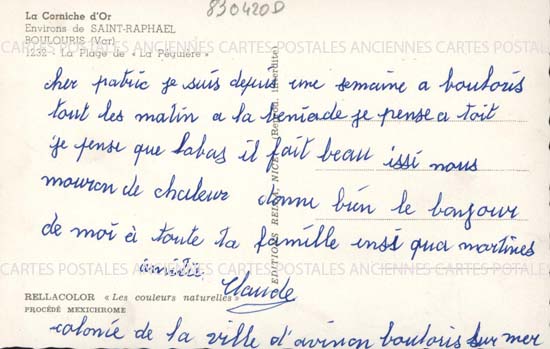 830420D
La Corniche d'Or
Environs de SAINT-RAPHAEL
BOULOURIS (Var)
1232 - La Plage de « La Péguière »
CARTES POSTALES ANCIENNES CARTES POSTALES ANCIENNES CARTES POSTALES
cher patric je suis depuis une semaine a boulouris
tout les matin a la beniade je pense a toit
je pense que labas il fait beau issi nous
mouron de chaleur donne bien le bonjour
de moi à toute ta famille ensi qua martines
CARTES POSTALES ANCIENNES CARTES POSTALES ANCIENNES CARTES POSTALES
amitié
Claude
EDITIONS RELLA, NICE (Reprod. interdite)
RELLACOLOR « Les couleurs naturelles »
PROCÉDÉ MEXICHROME
colonie de la ville d'avinon boulouris sur mer